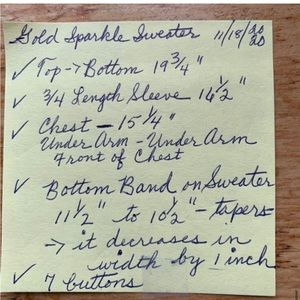 Gold Sparkle Sweater 11/18/2020
✓ Top → Bottom 19 3/4"
✓ 3/4 Length Sleeve 14 1/2"
✓ Chest — 15 1/4"
Under Arm - Under Arm
Front of Chest
✓ Bottom Band on Sweater
11 1/2" to 10 1/2" - tapers
→ it decreases in
width by 1 inch
✓ 7 buttons